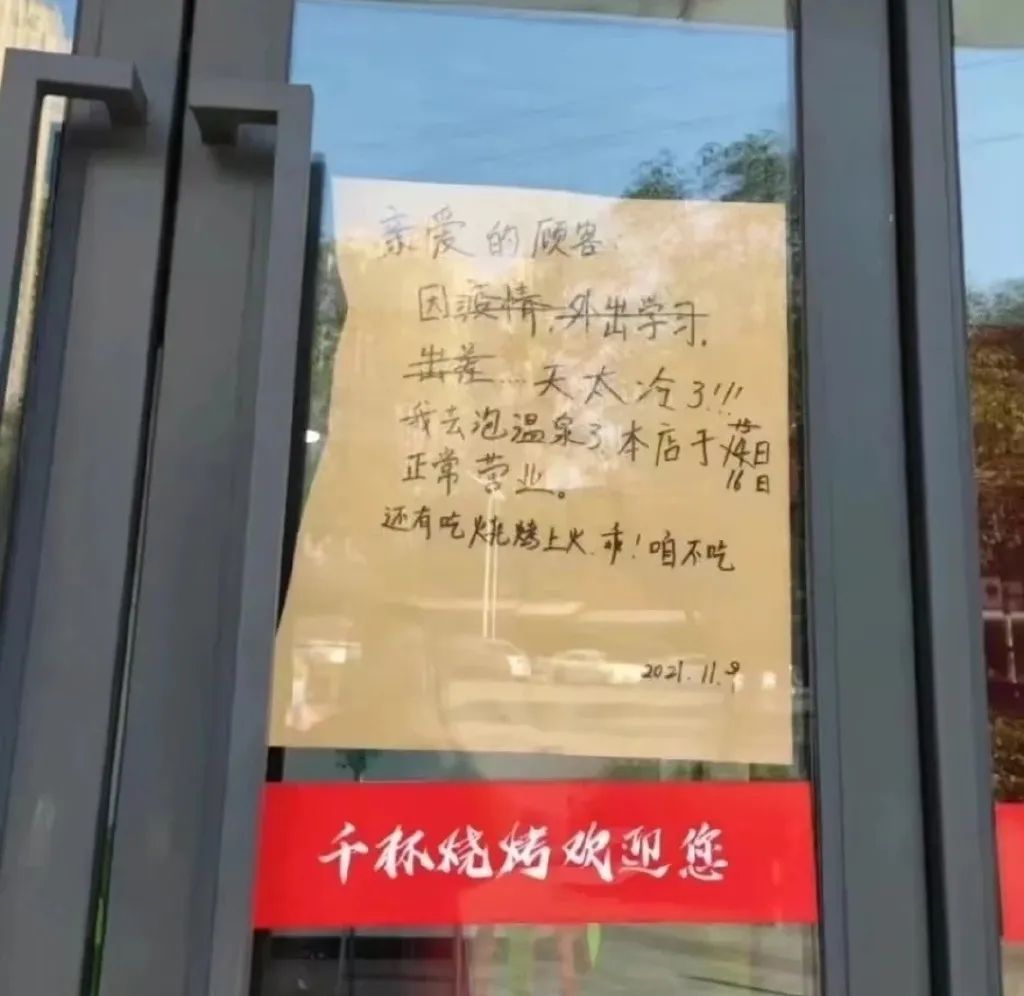 亲爱的顾客:
因疫情,外出学习,
出差...天太冷了!!!
我去泡温泉了.本店于14日
16日
正常营业。
还有吃烧烤上火.乖!咱不吃
2021.11.9
千杯烧烤欢迎您